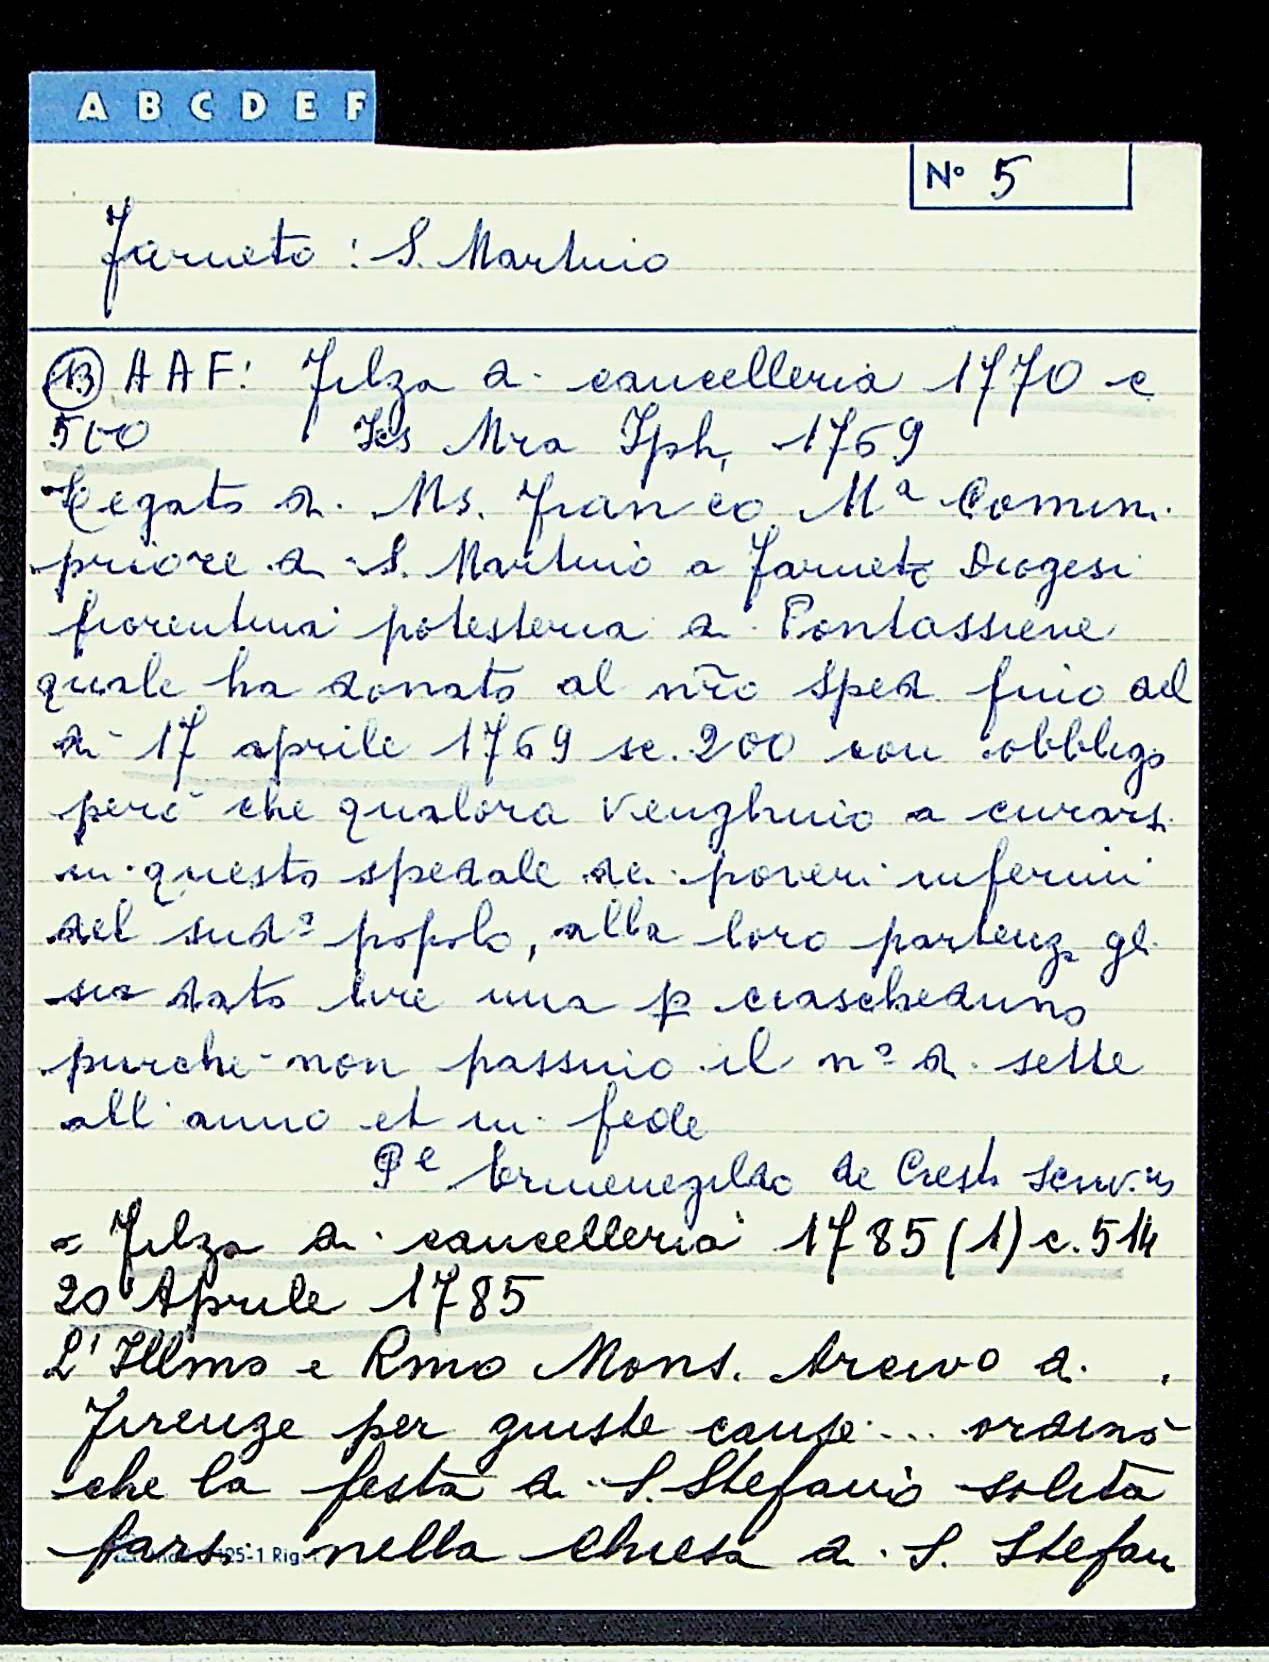 A B C D E F
N° 5
Farneto: S. Martino
(13) AAF: Filza di cancelleria 1770 c
500 Jes Mra Jph, 1769
Legato di Ms. Franco Mª Comin.
priore di S. Martino a Farneto Diogesi
fiorentina potesteria di Pontassieve
quale ha donato al nr̃o sped. fino del
dì 17 aprile 1769 sc. 200 con obbligo
però che qualora venghino a curarsi
in questo spedale dei poveri infermi
del sudº popolo, alla loro partenza gli
sia dato lire una p ciascheduno
purché non passino il nº di sette
all'anno et in fede
Pe Ermenegildo de Cresti
= Filza di cancelleria 1785 (1) c. 514
20 Aprile 1785
L'Illmo e Rmo Mons. Arcivo di
Firenze per giuste cause ... ordinò
che la festa di S. Stefano solita
farsi nella Chiesa di S. Stefan
95-1 Rig.